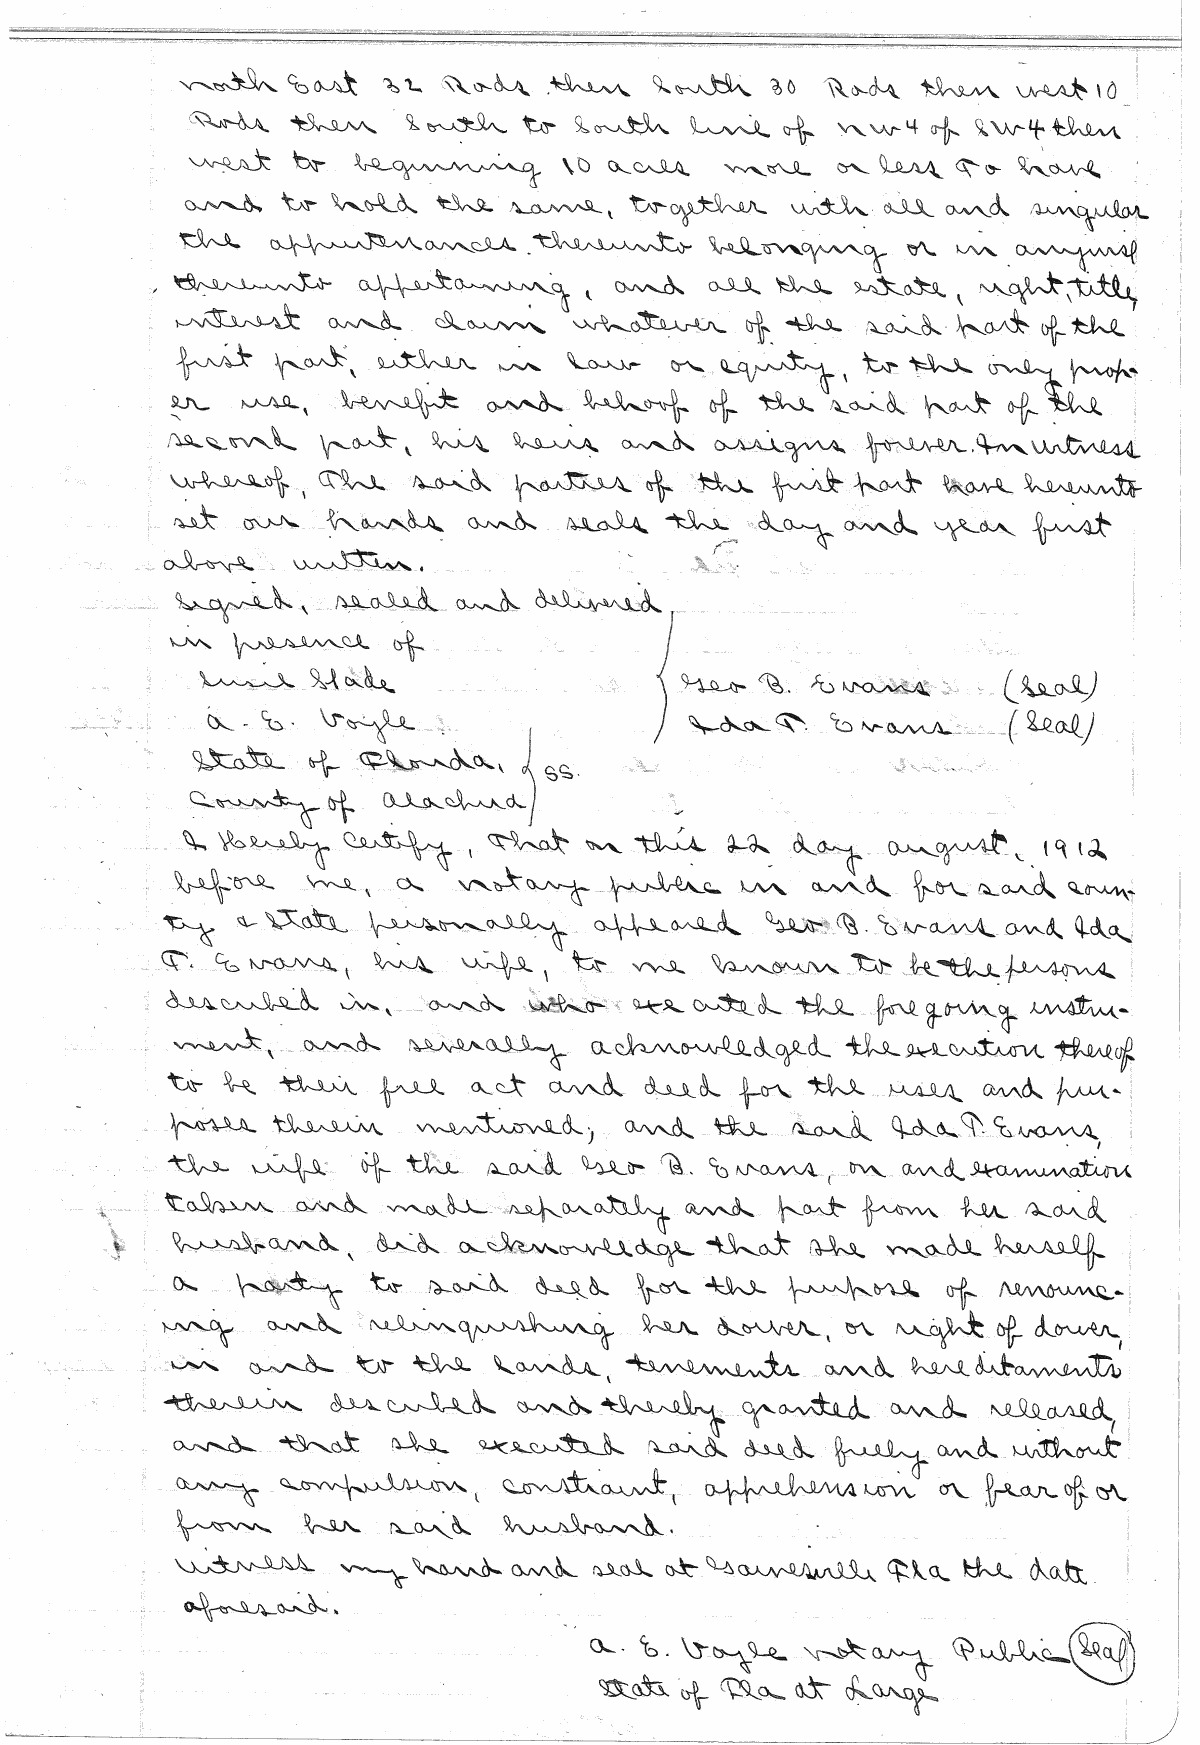 north East 32 Rods then South 30 Rods then west 10
Rods then South to South line of NW4 of SW4 then
west to beginning 10 acres more or less To have
and to hold the same, together with all and singular
the appurtenances thereunto belonging or in anywise
thereunto appertaining, and all the estate, right, title,
interest and claim whatever of the said part of the
first part, either in law or equity, to the only prop-
er use, benefit and behoof of the said part of the
second part, his heirs and assigns forever. In witness
whereof, The said parties of the first part have hereunto
set our hands and seals the day and year first
above written.
Signed, sealed and delivered
in presence of
Susie Slade
Geo B. Evans (Seal)
A. E. Voyle
Ida T. Evans (Seal)
State of Florida, } SS.
County of Alachua
I Hereby Certify, That on this 22 day august, 1912
before me, a notary public in and for said coun-
ty & State personally appeared Geo B. Evans and Ida
T. Evans, his wife, to me known to be the persons
described in, and who executed the foregoing instru-
ment, and severally acknowledged the execution thereof
to be their free act and deed for the uses and pur-
poses therein mentioned; and the said Ida T. Evans,
the wife of the said Geo B. Evans, on and examination
taken and made separately and part from her said
husband, did acknowledge that she made herself
a party to said deed for the purpose of renounc-
ing and relinquishing her dower, or right of dower,
in and to the lands, tenements and hereditaments
therein described and thereby granted and released,
and that she executed said deed freely and without
any compulsion, constraint, apprehension or fear of or
from her said husband.
Witness my hand and seal at Gainesville Fla the date
aforesaid.
A. E. Voyle Notary Public (Seal)
State of Fla at Large